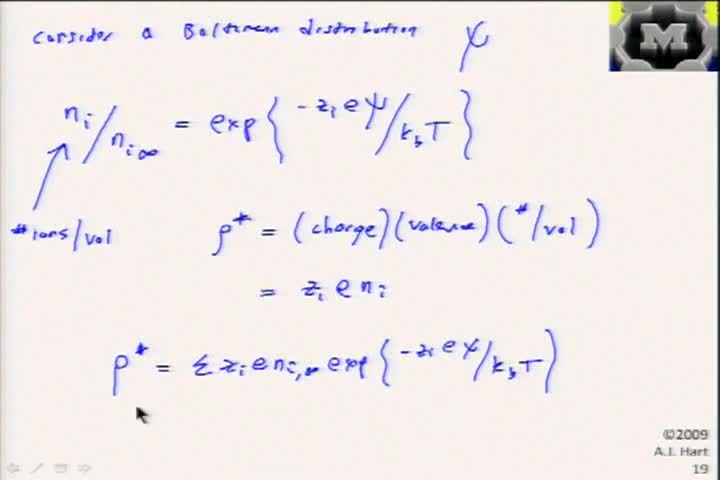 Consider a Boltzman distribution ψ
n_i / n_i∞ = exp { -z_i e ψ / k_b T }
#ions/vol
ρ* = (charge)(valence)(#/vol)
= z_i e n_i
ρ* = Σ z_i e n_i,∞ exp { -z_i e ψ / k_b T }
M
©2009
A.J. Hart
19